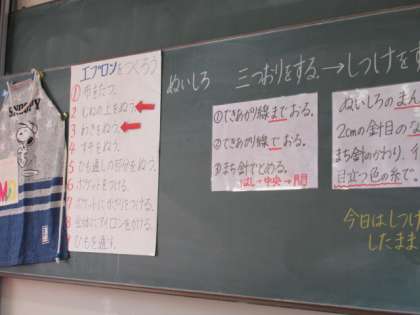 SNOOPY
エプロンをつくろう
① 布をたつ。
2 むねの上をぬう。
3 わきをぬう。
4 すそをぬう。
5 ひも通しの部分をぬう。
6 ポケットをつける。
7 ポケットにかざりをつける。
8 全体にアイロンをかける。
9 ひもを通す。
ぬいしろ 三つおりをする→しつけをす
①できあがり線までおる。
②できあがり線でおる。
③まち針でとめる。
はし→中央→間
ぬいしろのまん
2cmの針目の
まち針のかわり、
目立つ色の糸で。
今日はしつけ
したまま